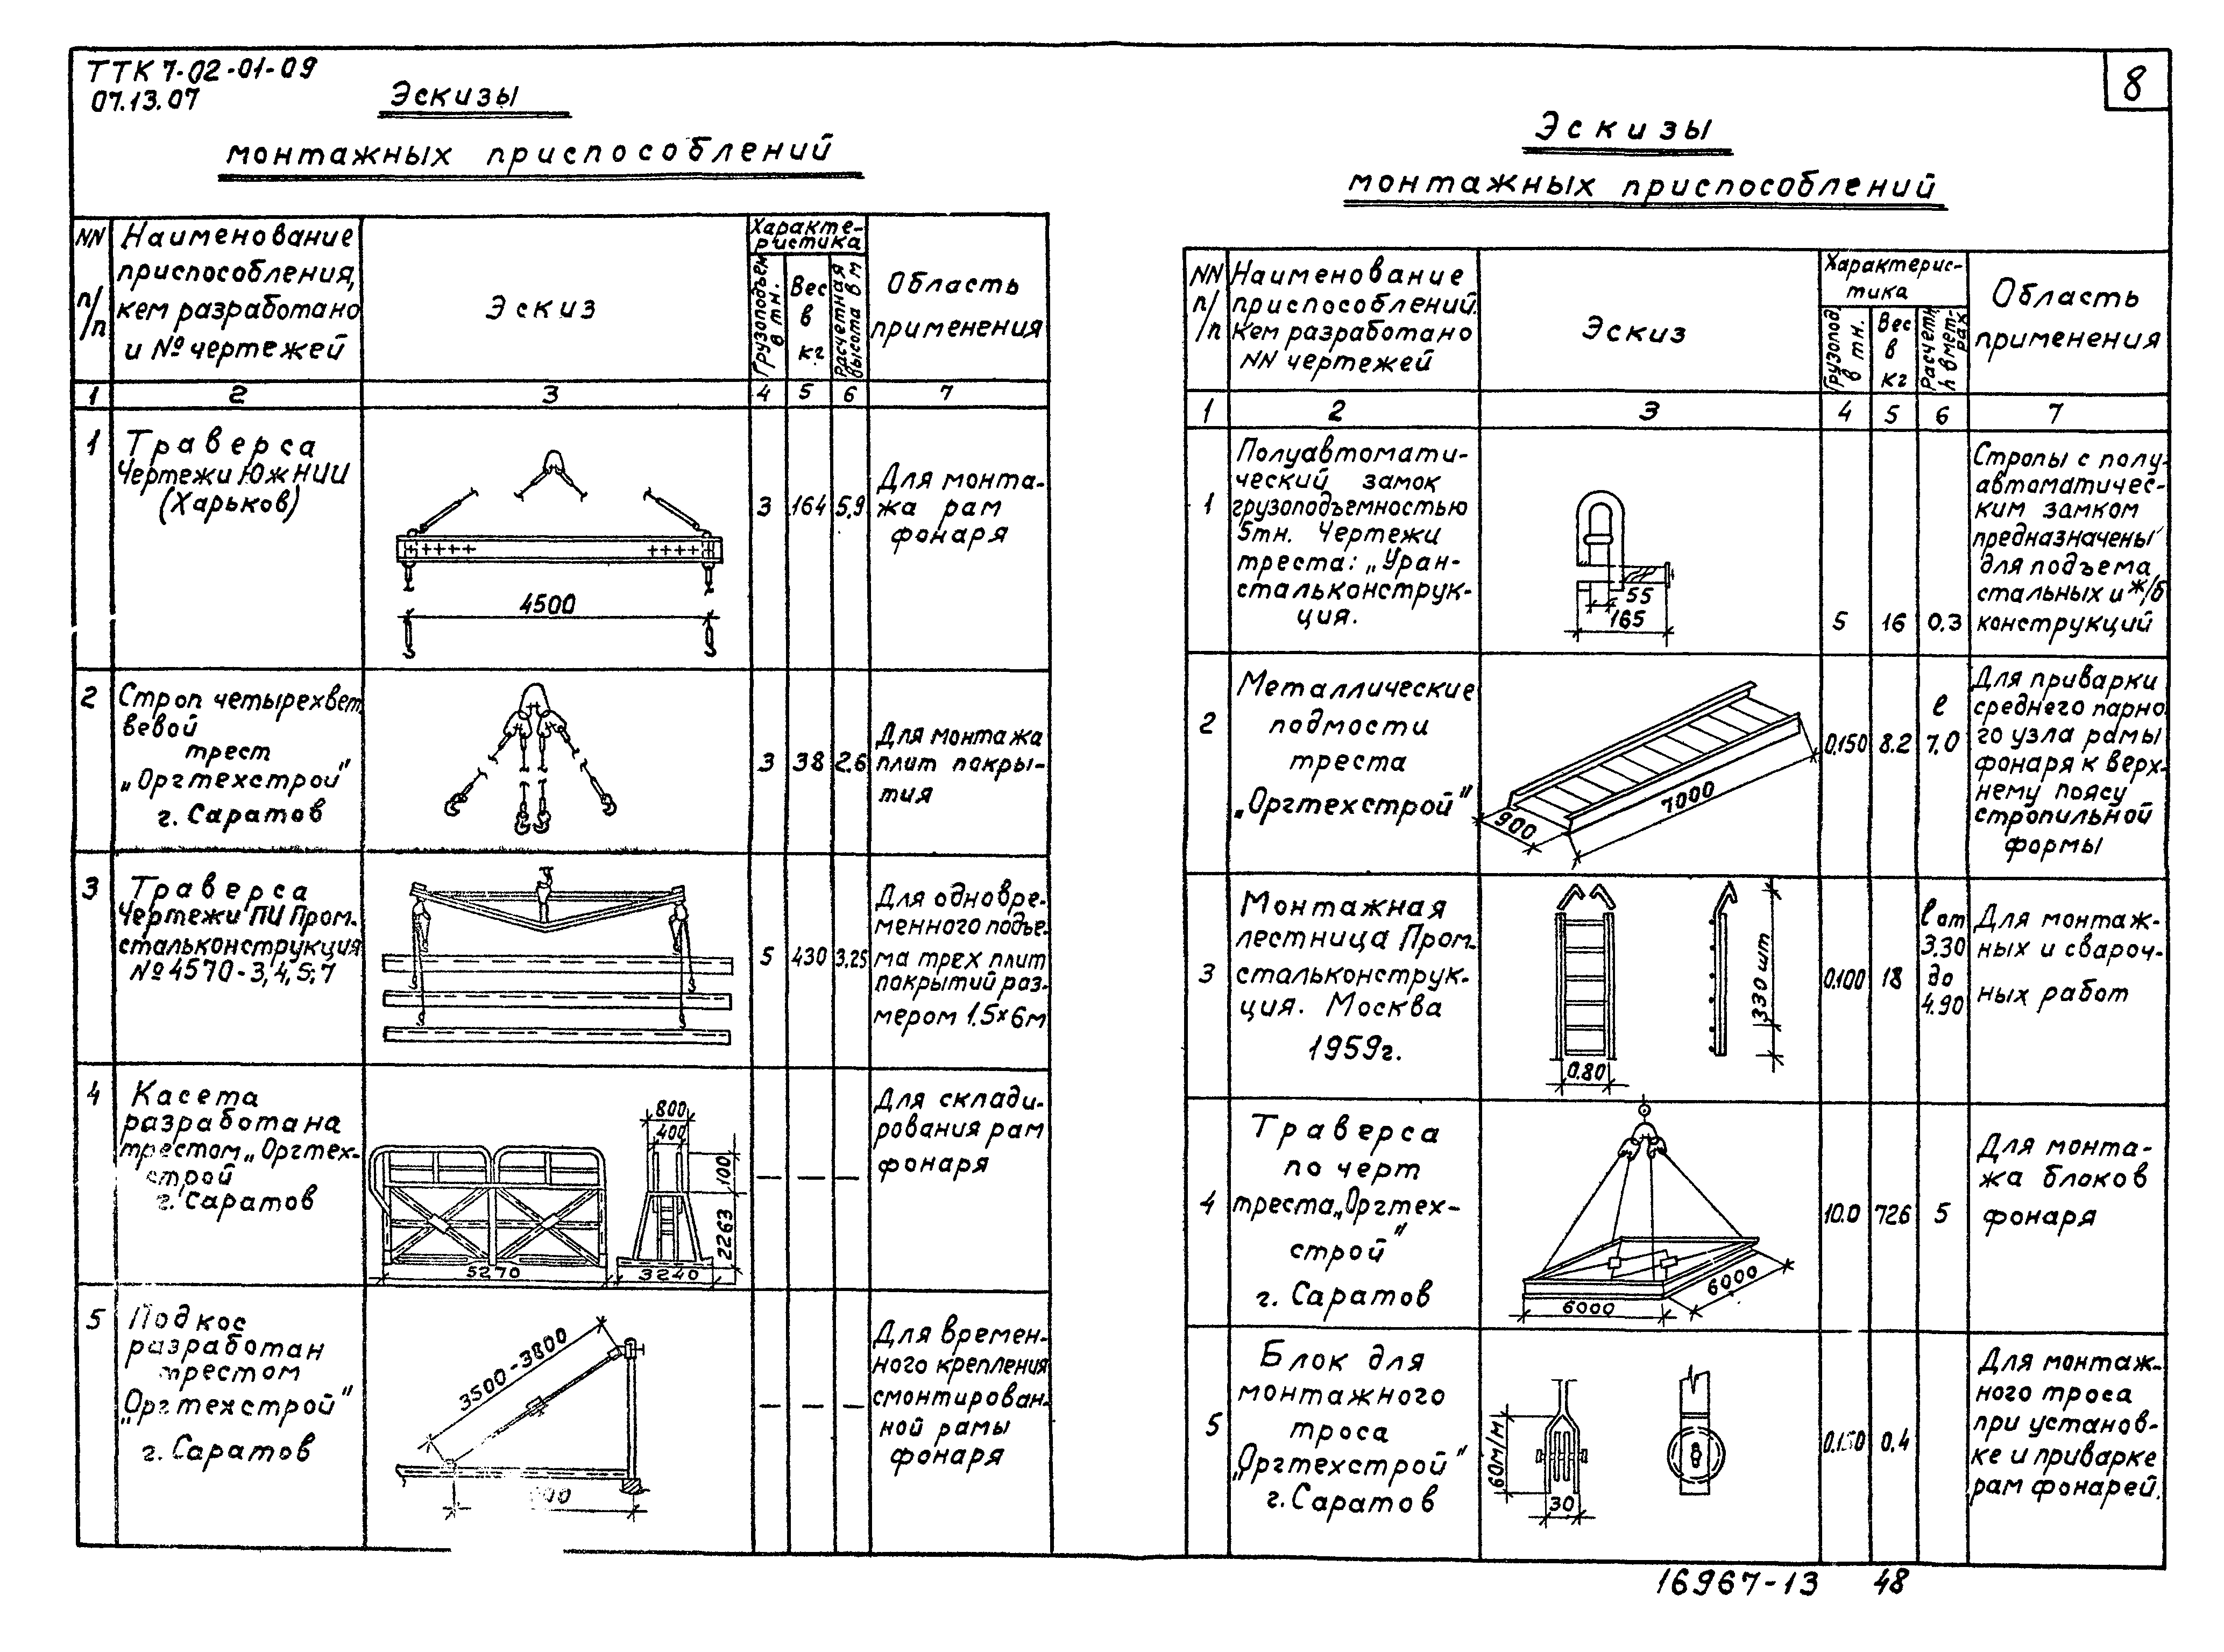 ТТК 7-02-01-09
07.13.07
8
Эскизы
монтажных приспособлений
NN п/п
Наименование
приспособления,
кем разработано
и № чертежей
Эскиз
Характе-
ристика
Грузоподъем
в тн.
Вес
в
кг
Расчетная
высота в м
Область
применения
1 2 3 4 5 6 7
1
Траверса
Чертежи ЮжНИИ
(Харьков)
4500
3 164 5,9
Для монта-
жа рам
фонаря
2
Строп четырехвет
вевой
трест
„Оргтехстрой"
г. Саратов
3 38 2,6
Для монтажа
плит покры-
тия
3
Траверса
Чертежи ПИ Пром-
стальконструкция
№ 4570-3,4,5;7
5 430 3,25
Для одновре-
менного подъе-
ма трех плит
покрытий раз-
мером 1.5×6м
4
Касета
разработана
трестом „Оргтех-
строй
г. Саратов
800
400
100
2263
5270
3240
— — —
Для склади-
рования рам
фонаря
5
Подкос
разработан
трестом
„Оргтехстрой"
г. Саратов
3500-3800
— — —
Для времен-
ного крепления
смонтирован-
ной рамы
фонаря
Эскизы
монтажных приспособлений
NN
п/п
Наименование
приспособлений.
Кем разработано
NN чертежей
Эскиз
Характерис-
тика
Грузопод.
в тн.
Вес
в
кг
Расчетн.
h в мет-
рах
Область
применения
1 2 3 4 5 6 7
1
Полуавтомати-
ческий замок
грузоподъемностью
5тн. Чертежи
треста: „Уран-
стальконструк-
ция.
55
165
5 16 0.3
Стропы с полу-
автоматичес-
ким замком
предназначены
для подъема
стальных и ж/б
конструкций
2
Металлические
подмости
треста
„Оргтехстрой"
900
7000
0.150 8.2
ℓ
7.0
Для приварки
среднего парно
го узла рамы
фонаря к верх-
нему поясу
стропильной
формы
3
Монтажная
лестница Пром-
стальконструк-
ция. Москва
1959г.
0.80
330 шт
0.100 18
ℓ от
3.30
до
4.90
Для монтаж-
ных и свароч-
ных работ
4
Траверса
по черт
треста „Оргтех-
строй"
г. Саратов
6000
6000
10.0 726 5
Для монта-
жа блоков
фонаря
5
Блок для
монтажного
троса
„Оргтехстрой"
г. Саратов
60м/м
30
0.4
Для монтаж-
ного троса
при установ-
ке и приварке
рам фонарей.
16967-13 48